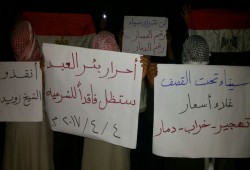 سيناء تحت القصف
غلاء أسعار
تهجير - خراب - دمار
أحرار بئر العبد
ستظل فاقداً للشرعيه
٤ / ٤ / ٢٠١٧
أنقذو
الشيخ زويد